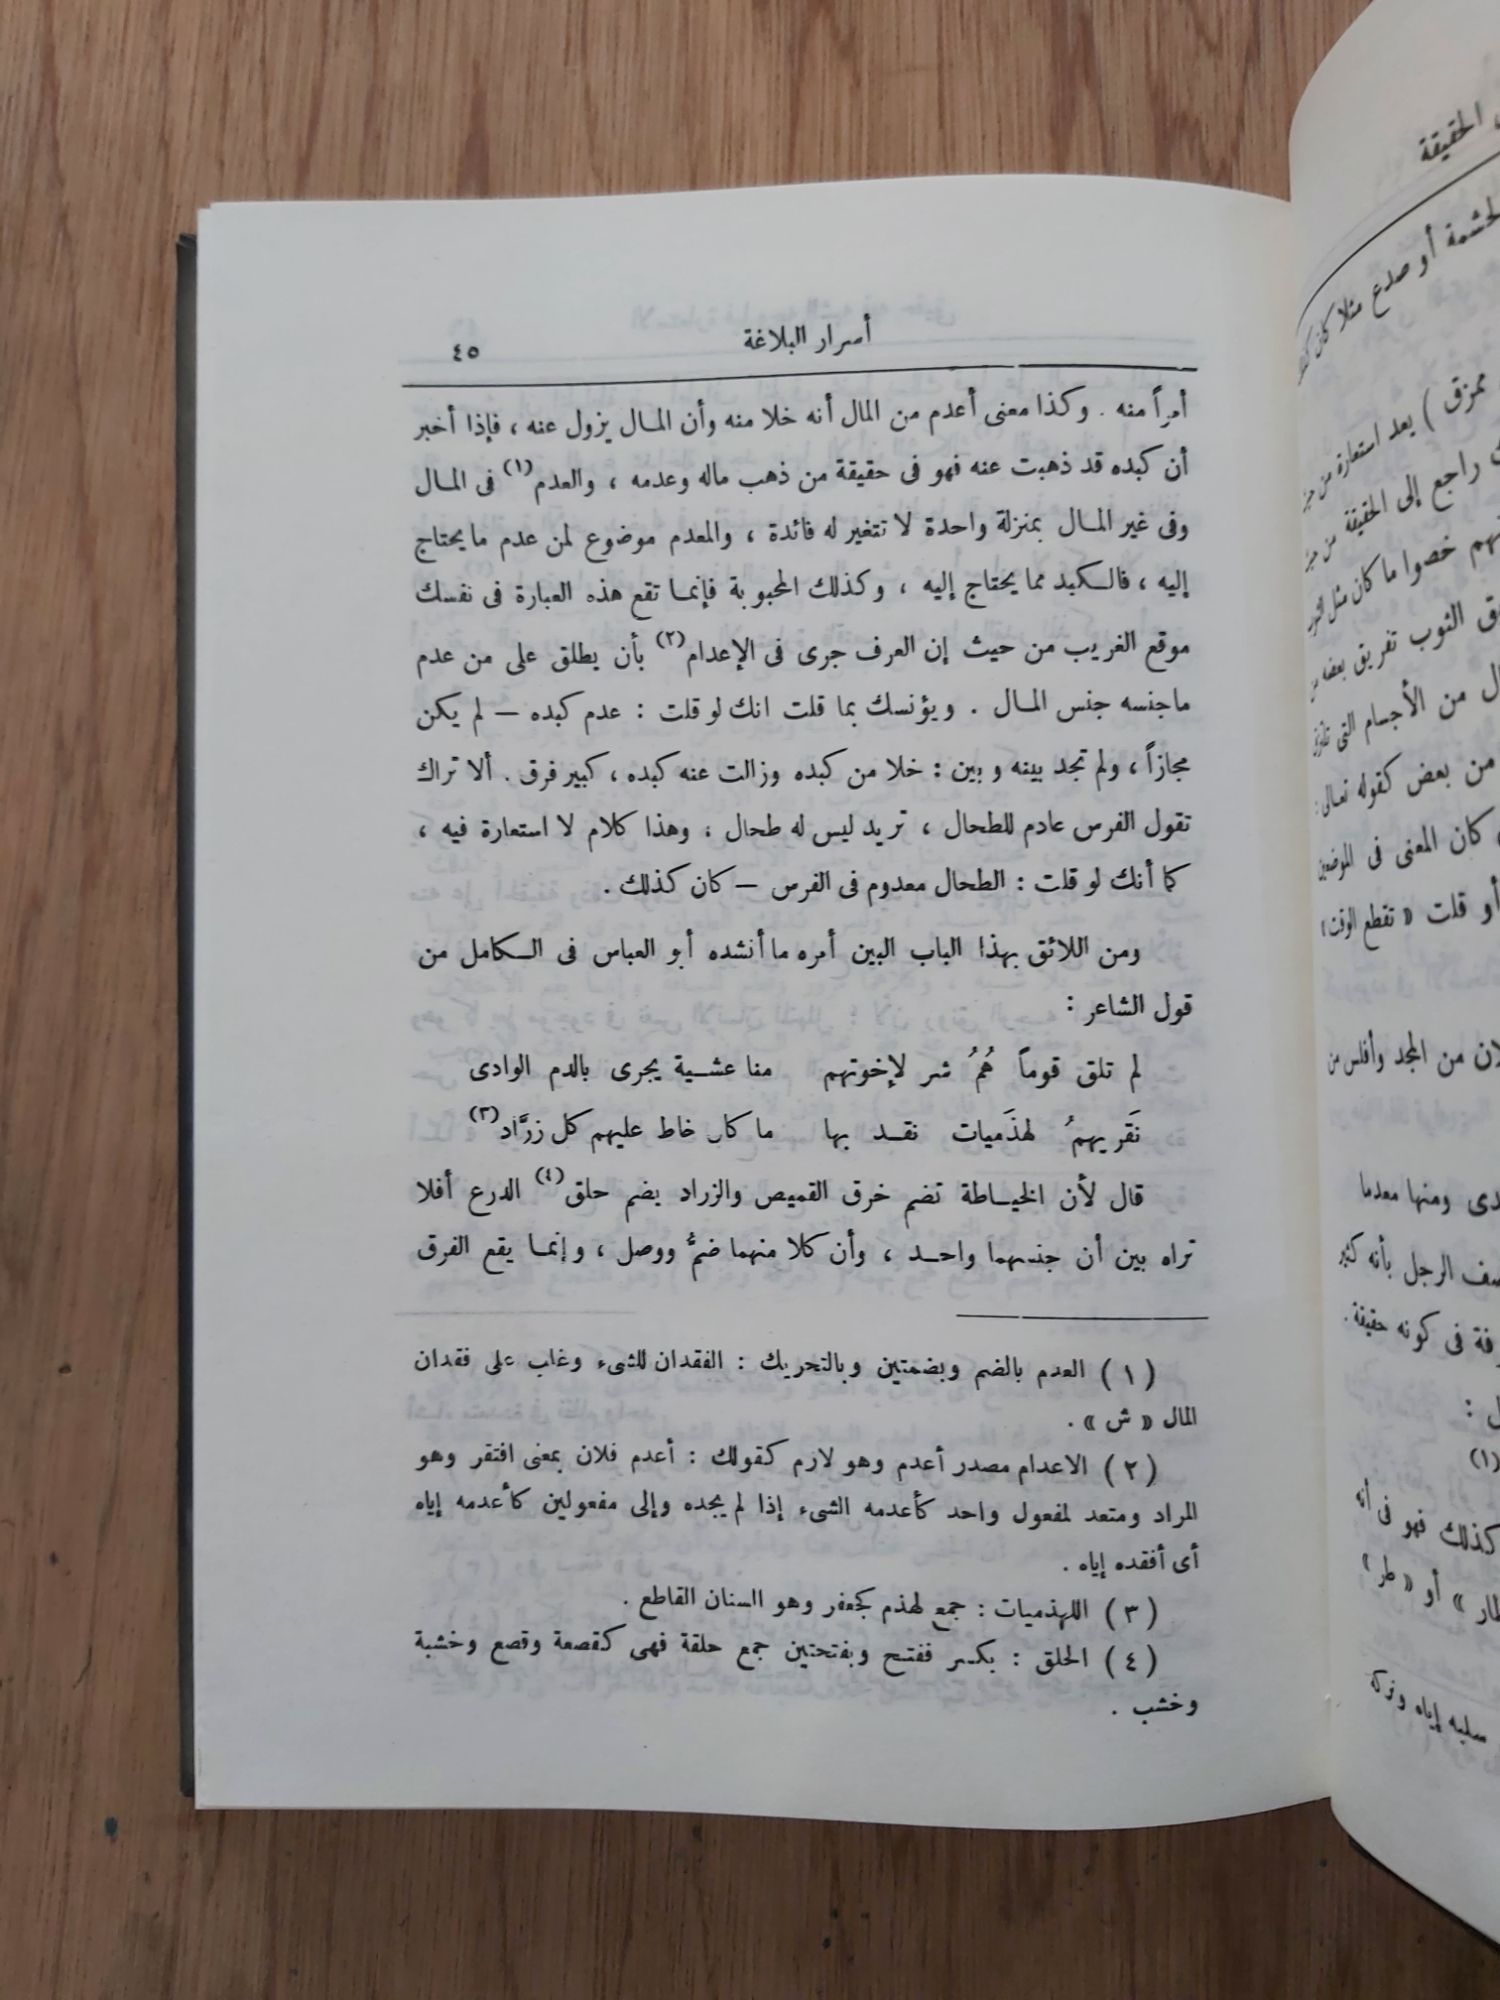 أسرار البلاغة
٤٥
أمراً منه . وكذا معنى أعدم من المال أنه خلا منه وأن المال يزول عنه ، فإذا أخبر
أن كبده قد ذهبت عنه فهو فى حقيقة من ذهب ماله وعدمه ، والعدم(١) فى المال
وفى غير المال بمنزلة واحدة لا تتغير له فائدة ، والمعدم موضوع لمن عدم ما يحتاج
إليه ، فالكبد مما يحتاج إليه ، وكذلك المحبوبة فإنما تقع هذه العبارة فى نفسك
موقع الغريب من حيث إن العرف جرى فى الإعدام(٢) بأن يطلق على من عدم
ماجنسه جنس المال . ويؤنسك بما قلت انك لو قلت : عدم كبده — لم يكن
مجازاً ، ولم تجد بينه وبين : خلا من كبده وزالت عنه كبده ، كبير فرق . ألا تراك
تقول الفرس عادم للطحال ، تريد ليس له طحال ، وهذا كلام لا استعارة فيه ،
كما أنك لو قلت : الطحال معدوم فى الفرس — كان كذلك .
ومن اللائق بهذا الباب البين أمره ما أنشده أبو العباس فى الكامل من
قول الشاعر :
لم تلق قوماً هُمُ شر لإخوتهم منا عشية يجرى بالدم الوادى
نَقريهمُ لهذَميات نقد بها ما كان خاط عليهم كل زرَّاد(٣)
قال لأن الخياطة تضم خرق القميص والزراد يضم حلق(٤) الدرع أفلا
تراه بين أن جنسهما واحد ، وأن كلا منهما ضمُّ ووصل ، وإنما يقع الفرق
(١) العدم بالضم وبضمتين وبالتحريك : الفقدان للشىء وغلب على فقدان
المال « ش » .
(٢) الاعدام مصدر أعدم وهو لازم كقولك : أعدم فلان بمعنى افتقر وهو
المراد ومتعد لمفعول واحد كأعدمه الشىء إذا لم يجده وإلى مفعولين كأعدمه إياه
أى أفقده إياه .
(٣) اللهذميات : جمع لهذم كجعفر وهو السنان القاطع .
(٤) الحلق : بكسر ففتح وبفتحتين جمع حلقة فهى كقصعة وقصع وخشبة
وخشب .
الحقيقة
أو صدع مثلا كان
ممزق ) يعد استعارة من
راجع إلى الحقيقة من
خصوا ما كان مثل
الثوب تفريق بعضه
من الأجسام التى
من بعض كقوله تعالى :
كان المعنى فى الموضعين
أو قلت « تقطع الوقت »
من المجد وأفلس من
ومنها معدما
الرجل بأنه كثير
فى كونه حقيقة .
(١)
كذلك فهو فى أنه
أو « طر »
سلبه إياه وتركه